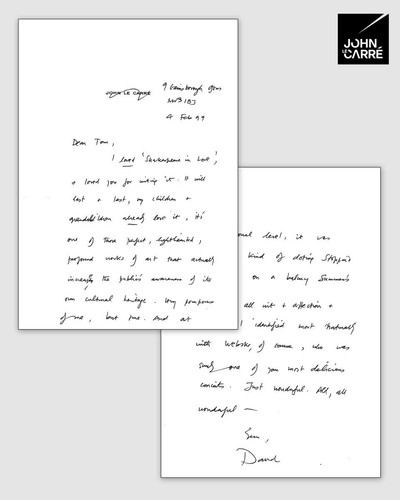 JOHN
LE
CARRÉ
JOHN LE CARRÉ
9 Gainsborough Gdns
NW3 1BJ
4 Feb 99
Dear Tom,
I loved 'Shakespeare in Love',
+ loved you for writing it. It will
last + last, my children +
grandchildren already love it, it's
one of those perfect, lighthearted,
profound works of art that actually
increases the public's awareness of its
own cultural heritage. Very pompous
of me, but true. And at
onal level, it was
kind of doting Stoppard
on a balmy Summer's
all wit + affection +
I identified most naturally
with Webster, of course, who was
such one of your most delicious
conceits. Just wonderful. All, all
wonderful —
David